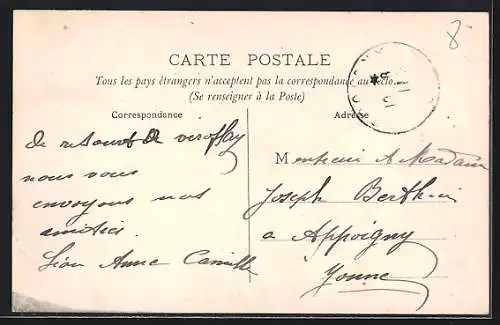 8
CARTE POSTALE
Tous les pays étrangers n'acceptent pas la correspondance au recto
(Se renseigner à la Poste)
Correspondance
Adresse
de retour de viroflay
nous vous
envoyons nos
amitiés
Léon Anne Camille
Monsieur & Madame
Joseph Berthin
a Appoigny
Yonne